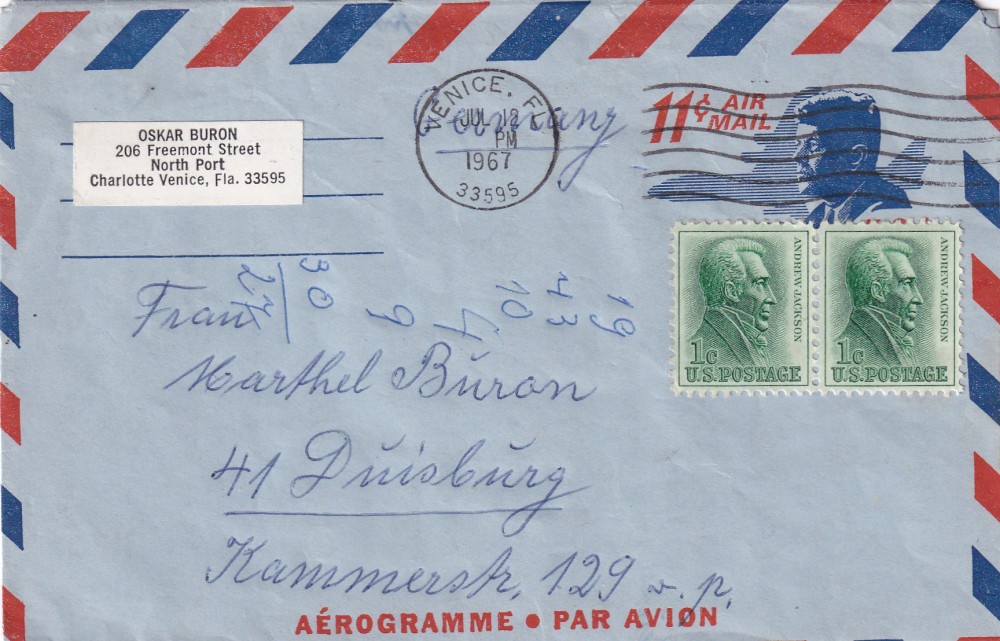 VENICE, FL
JUL 12
PM
1967
33595
Germany
11¢ AIR
MAIL
OSKAR BURON
206 Freemont Street
North Port
Charlotte Venice, Fla. 33595
ANDREW JACKSON
1c
U.S.POSTAGE
ANDREW JACKSON
1c
U.S.POSTAGE
19
43
10
4
9
30
27
Frau
Marthel Buron
41 Duisburg
Kammerstr, 129 v. p.
AÉROGRAMME • PAR AVION